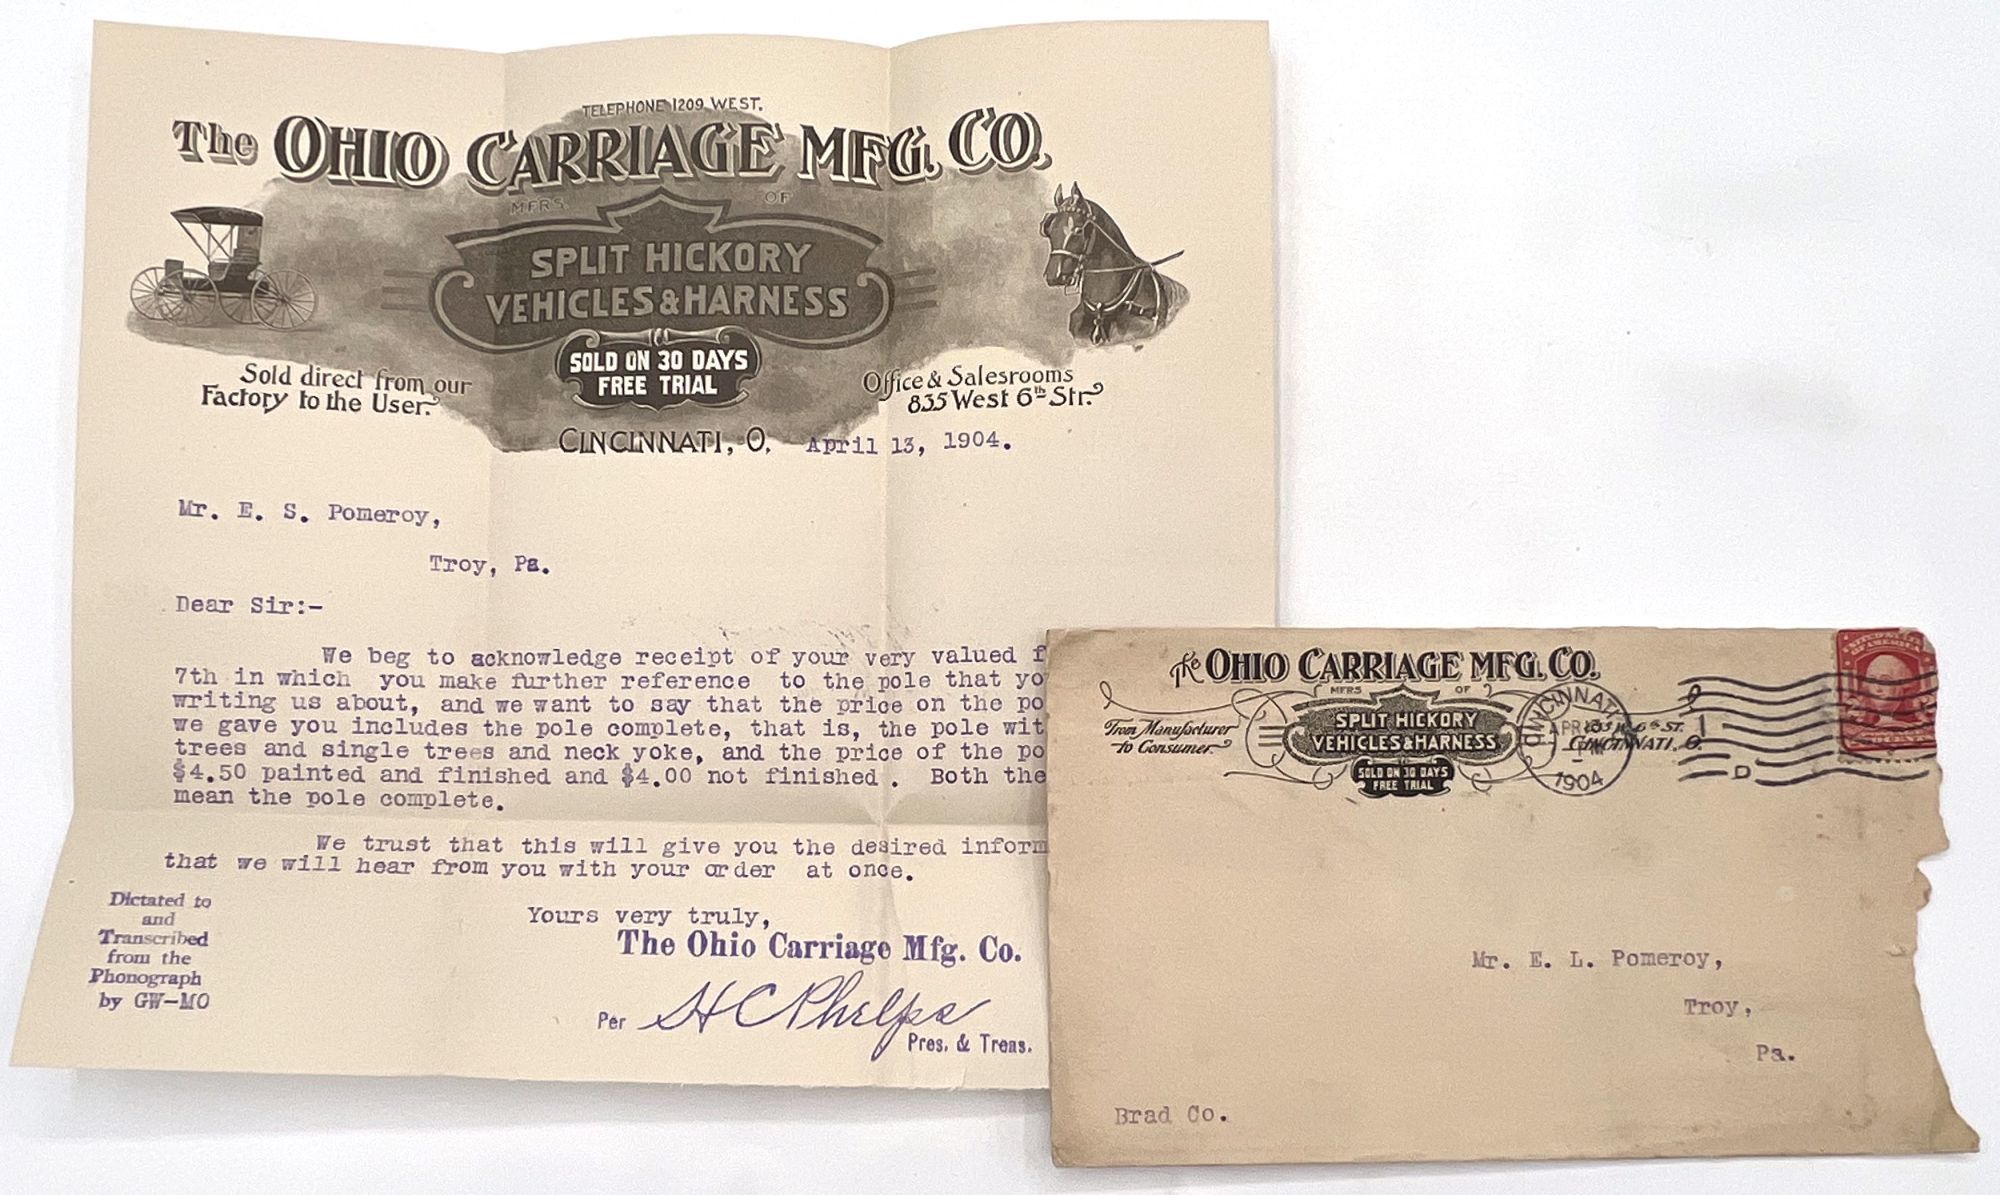 TELEPHONE 1209 WEST.
The OHIO CARRIAGE MFG. CO.
MFRS. OF
SPLIT HICKORY
VEHICLES & HARNESS
SOLD ON 30 DAYS
FREE TRIAL
Sold direct from our
Factory to the User.
Office & Salesrooms
835 West 6th Str.
CINCINNATI, O. April 13, 1904.
Mr. E. S. Pomeroy,
Troy, Pa.
Dear Sir:-
We beg to acknowledge receipt of your very valued f
7th in which you make further reference to the pole that yo
writing us about, and we want to say that the price on the po
we gave you includes the pole complete, that is, the pole wit
trees and single trees and neck yoke, and the price of the po
$4.50 painted and finished and $4.00 not finished. Both the
mean the pole complete.
We trust that this will give you the desired inform
that we will hear from you with your order at once.
Dictated to
and
Transcribed
from the
Phonograph
by GW-MO
Yours very truly,
The Ohio Carriage Mfg. Co.
Per H C Phelps
Pres. & Treas.
The OHIO CARRIAGE MFG. CO.
MFRS OF
SPLIT HICKORY
VEHICLES & HARNESS
SOLD ON 30 DAYS
FREE TRIAL
From Manufacturer
to Consumer.
6th ST.
CINCINNATI, O.
CINCINNATI
APR
1904
D
Mr. E. L. Pomeroy,
Troy,
Pa.
Brad Co.